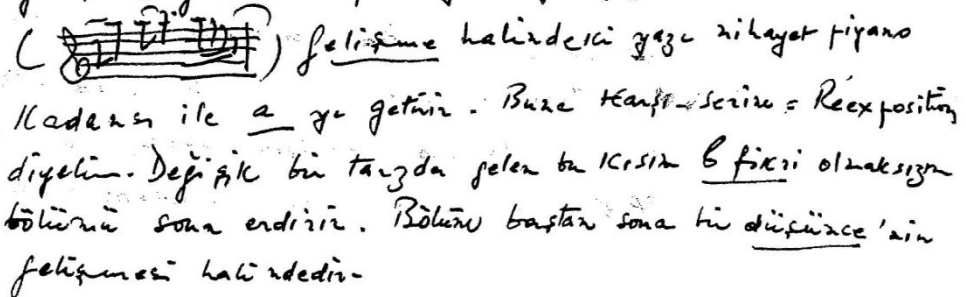 ( ) gelişme halindeki yazı nihayet piyano
Kadansı ile a ya getirir. Buna Karşı-serim = Réexposition
diyelim. Değişik bir tarzda gelen bu Kısım b fikri olmaksızın
bölümü sona erdirir. Bölüm baştan sona bir düşünce'nin
gelişmesi halindedir.